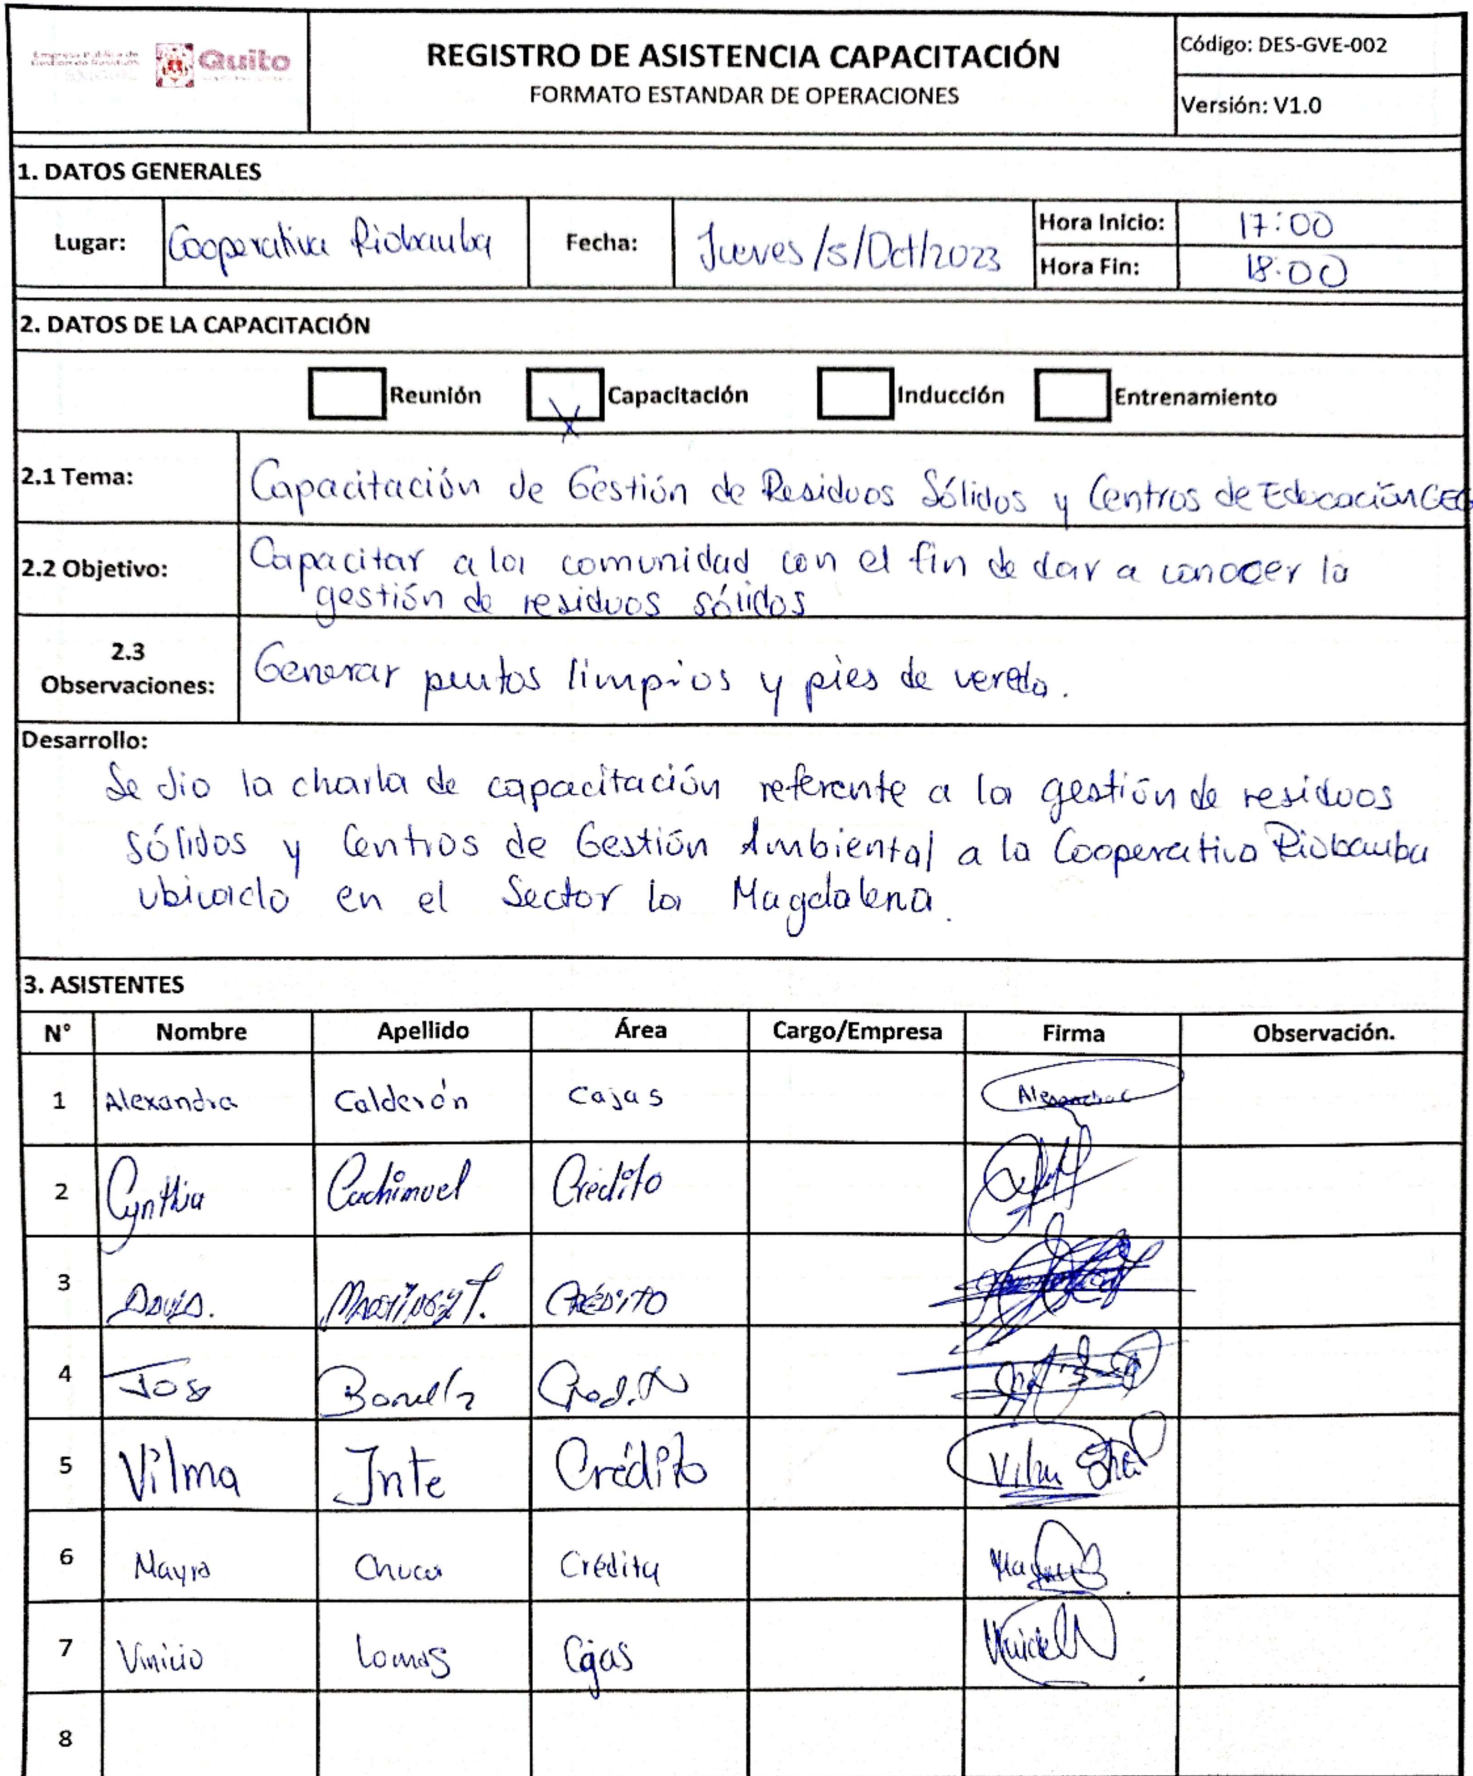 Empresa Pública de
Gestión de Residuos
Quito
REGISTRO DE ASISTENCIA CAPACITACIÓN
FORMATO ESTANDAR DE OPERACIONES
Código: DES-GVE-002
Versión: V1.0
1. DATOS GENERALES
Lugar: Cooperativa Riobamba Fecha: Jueves /5/Oct/2023 Hora Inicio: 17:00
Hora Fin: 18:00
2. DATOS DE LA CAPACITACIÓN
Reunión X Capacitación Inducción Entrenamiento
2.1 Tema: Capacitación de Gestión de Residuos Sólidos y Centros de Educación
2.2 Objetivo: Capacitar a la comunidad con el fin de dar a conocer la
gestión de residuos sólidos
2.3 Observaciones: Generar puntos limpios y pies de vereda.
Desarrollo:
Se dio la charla de capacitación referente a la gestión de residuos
sólidos y Centros de Gestión Ambiental a la Cooperativa Riobamba
ubicado en el Sector la Magdalena.
3. ASISTENTES
N° Nombre Apellido Área Cargo/Empresa Firma Observación.
1 Alexandra Calderón Cajas
2 Cynthia Cachimuel Crédito
3 DAVID. MARTÍNEZ T. CRÉDITO
4 Bonilla
5 Vilma Inte Crédito Vilma
6 Mayra Chuca Crédito
7 Vinicio Lomas Cajas
8